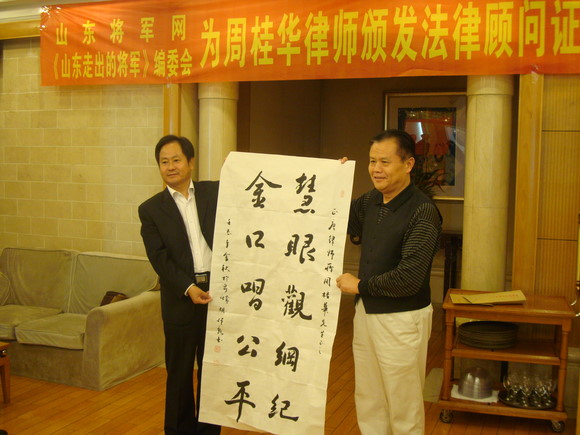 山东将军网
《山东走出的将军》编委会
为周桂华律师颁发法律顾问证
慧眼觀綱紀
金口唱公平